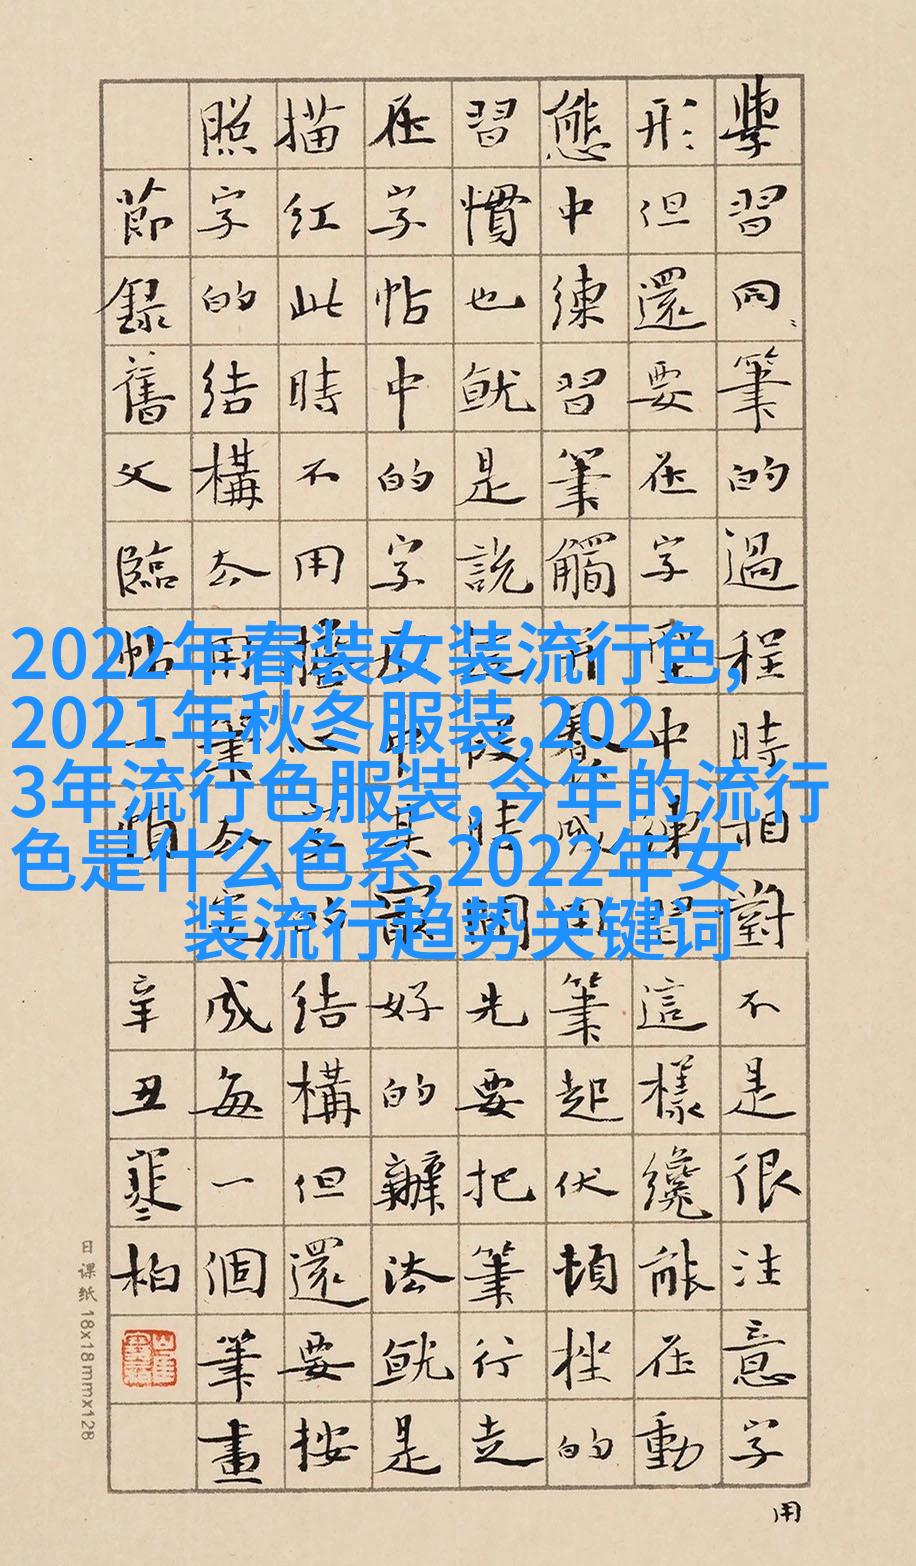 2022年春装女装流行色,
2021年秋冬服装,202
3年流行色服装,今年的流行
色是什么色系,2022年女
装流行趋势关键词
學習同筆的過程時相對不是很注意字
用
形但還要在字中練習這樣纔能在動
態中練習筆觸養成用筆起伏頓挫的
習慣也就是說這段時間先要把筆行走
在字帖中的字其最好的辦法就是
描红此時不用擔心它的結構但還要按
照字的結構去用筆去完成每一個筆畫
節録舊文臨帖一頓
辛丑寒柏
日课纸 18x18mmx128